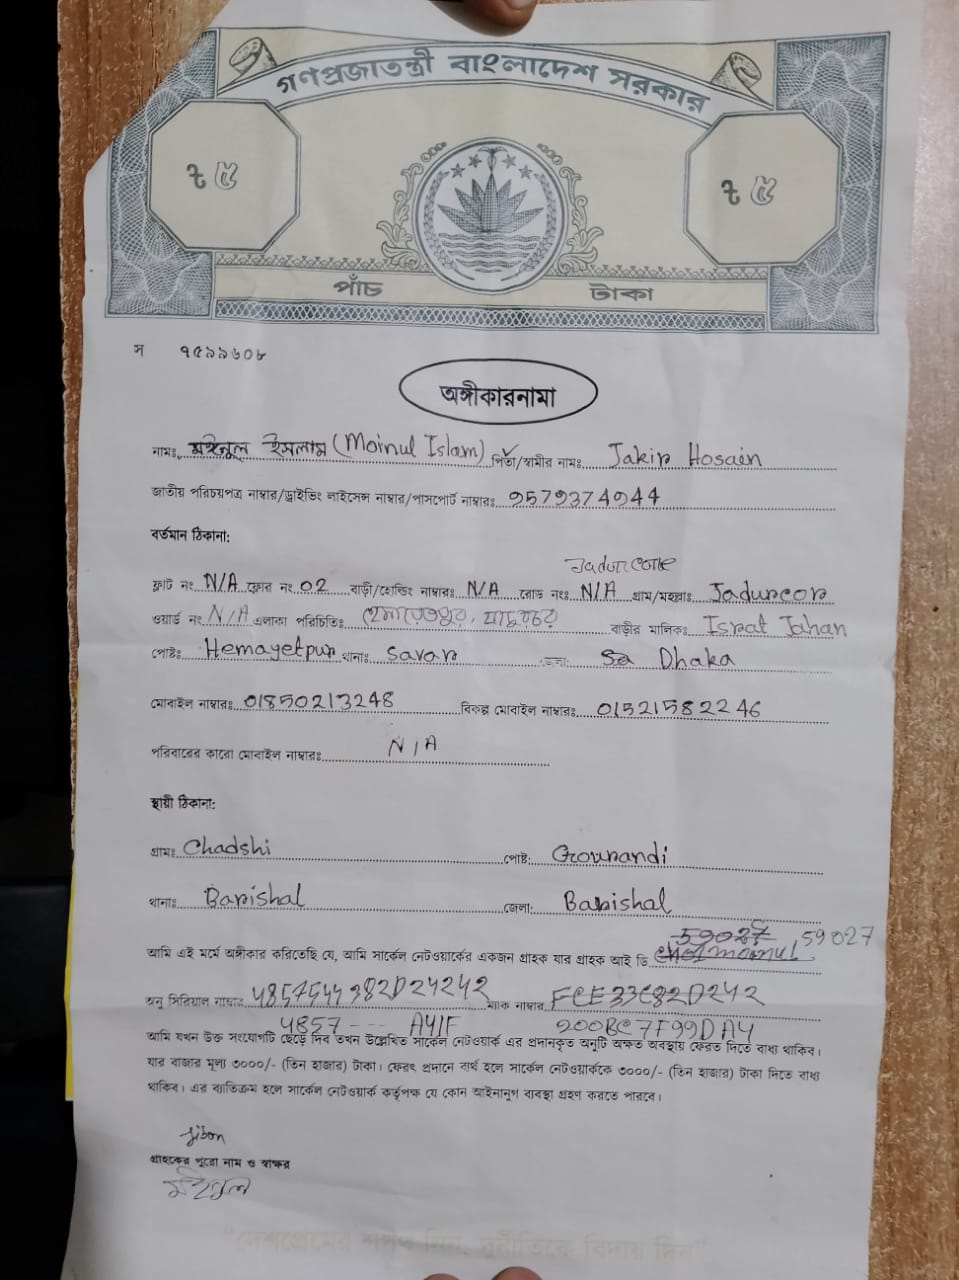 গণপ্রজাতন্ত্রী বাংলাদেশ সরকার
৳ ৫ ৳ ৫
পাঁচ টাকা
স ৭৫৯৯৬০৮
অঙ্গীকারনামা
নামঃ মঈনুল ইসলাম (Moinul Islam) পিতা/স্বামীর নামঃ Jakir Hosain
জাতীয় পরিচয়পত্র নাম্বার/ড্রাইভিং লাইসেন্স নাম্বার/পাসপোর্ট নাম্বারঃ 9579374944
বর্তমান ঠিকানা:
ফ্লাট নং N/A ফ্লোর নং 02 বাড়ী/হোল্ডিং নাম্বারঃ N/A রোড নংঃ N/A গ্রাম/মহল্লাঃ Jadurcor
ওয়ার্ড নং N/A এলাকা পরিচিতিঃ হেমায়েতপুর, যাদুরচর বাড়ীর মালিকঃ Israt Jahan
পোষ্টঃ Hemayetpur থানাঃ Savar জেলা: Dhaka
মোবাইল নাম্বারঃ 01850213248 বিকল্প মোবাইল নাম্বারঃ 01521582246
পরিবারের কারো মোবাইল নাম্বারঃ N/A
স্থায়ী ঠিকানা:
গ্রামঃ Chadshi পোষ্ট: Gournandi
থানাঃ Barishal জেলা: Barishal
59027
আমি এই মর্মে অঙ্গীকার করিতেছি যে, আমি সার্কেল নেটওয়ার্কের একজন গ্রাহক যার গ্রাহক আই ডি
অনু সিরিয়াল নাম্বার 4857544382D24242 ম্যাক নাম্বার FCE33C82D242
4857--- A41F 200BC7F99DA4
আমি যখন উক্ত সংযোগটি ছেড়ে দিব তখন উল্লেখিত সার্কেল নেটওয়ার্ক এর প্রদানকৃত অনুটি অক্ষত অবস্থায় ফেরত দিতে বাধ্য থাকিব।
যার বাজার মূল্য ৩০০০/- (তিন হাজার) টাকা। ফেরৎ প্রদানে ব্যর্থ হলে সার্কেল নেটওয়ার্ককে ৩০০০/- (তিন হাজার) টাকা দিতে বাধ্য
থাকিব। এর ব্যতিক্রম হলে সার্কেল নেটওয়ার্ক কর্তৃপক্ষ যে কোন আইনানুগ ব্যবস্থা গ্রহণ করতে পারবে।
Jibon
গ্রাহকের পুরো নাম ও স্বাক্ষর
মঈনুল
"দেশপ্রেমের শপথ নিন, দুর্নীতিকে বিদায় দিন"